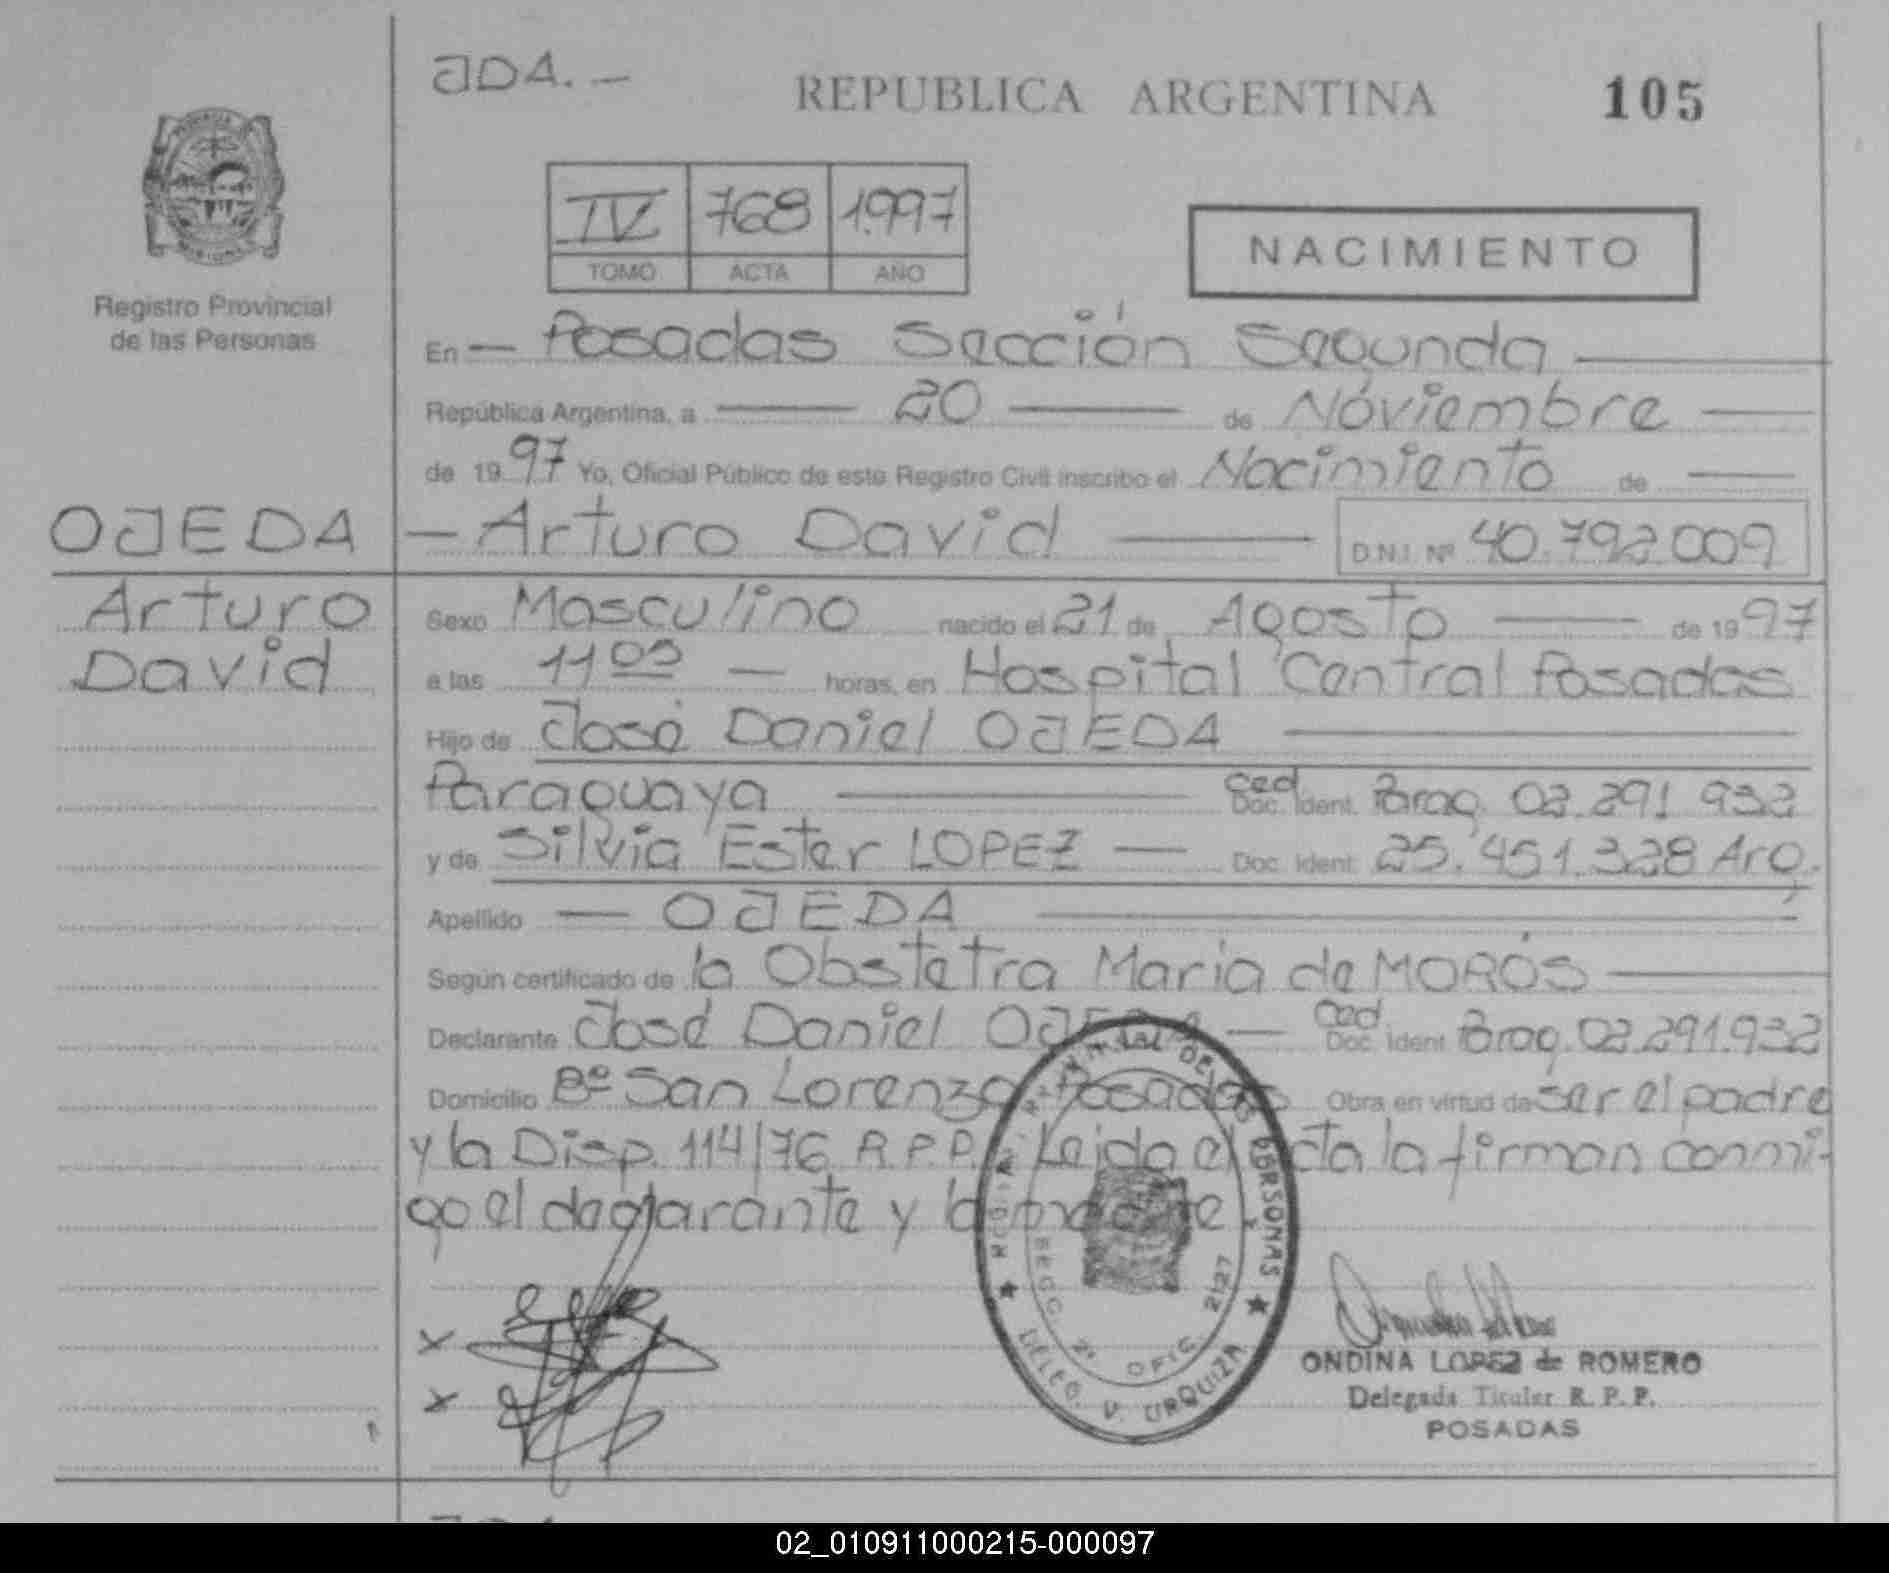 JDA. -
REPUBLICA ARGENTINA
105
IV 768 1997
TOMO ACTA AÑO
NACIMIENTO
Registro Provincial
de las Personas
En — Posadas Sección Segunda —
República Argentina, a — 20 — de Nóviembre —
de 1997 Yo, Oficial Público de este Registro Civil inscribo el Nacimiento de —
OJEDA
Arturo
David
— Arturo David — D.N.I. Nº 40.792.009
Sexo Masculino nacido el 21 de Agosto — de 1997
a las 11 05 — horas, en Hospital Central Posadas
Hijo de José Daniel OJEDA —
Paraguaya — Ced Doc. Ident. Parag. 02.291.932
y de Silvia Ester LOPEZ — Doc. Ident. 25.451.328 Arg.
Apellido — OJEDA —
Según certificado de la Obstetra Maria de MORÓS —
Declarante José Daniel OJEDA — Ced Doc. Ident. Parag. 02.291.932
Domicilio Bº San Lorenzo Posadas Obra en virtud de ser el padre
y la Disp. 114/76 R.P.P. Leida el acta la firman conmi-
go el declarante y la madre
x
x
DE LAS PERSONAS
SECC. 2ª OFIC. 2127
DELEG. V. URQUIZA
ONDINA LOPEZ de ROMERO
Delegada Titular R. P. P.
POSADAS
02_010911000215-000097